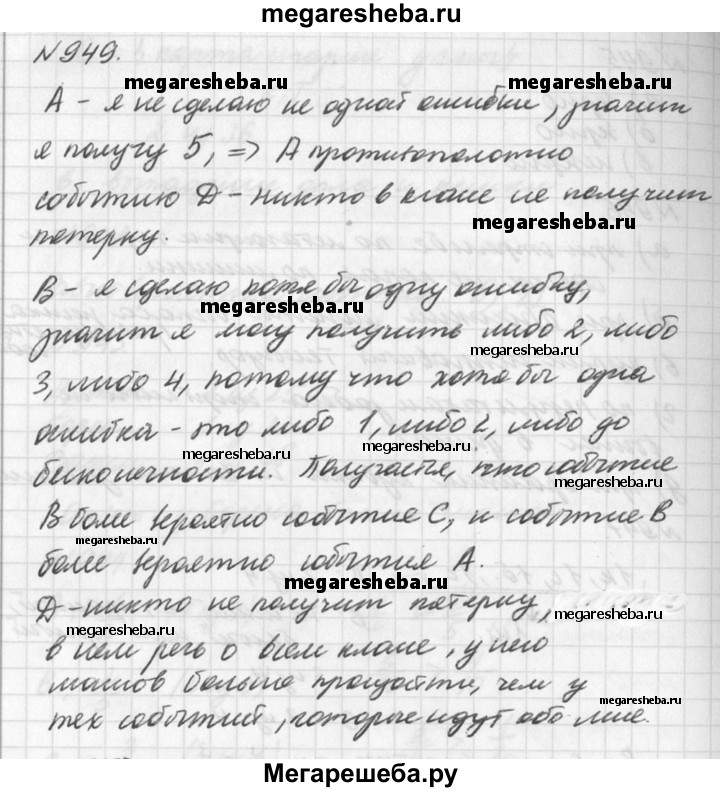 megaresheba.ru
№949.
megaresheba.ru
А - я не сделаю не одной ошибки, значит
я получу 5, => А противополотно
событию D - никто в класе не получит
megaresheba.ru
пятерку.
В - я сделаю хотя бы одну ошибку,
megaresheba.ru
значит я могу получить либо 2, либо
megaresheba.ru
3, либо 4, потому что хотя бы одна
ошибка - это либо 1, либо 2, либо до
megaresheba.ru megaresheba.ru
бесконечности. Получается, что событие
megaresheba.ru
В боле вероятно событие С, и событие В
megaresheba.ru
более вероятно события А.
megaresheba.ru
D - никто не получит пятерку,
megaresheba.ru
в нем речь о всем класе, у него
больше произойти, чем у
megaresheba.ru
тех событий, которые идут обо мне.
Мегарешеба.ру